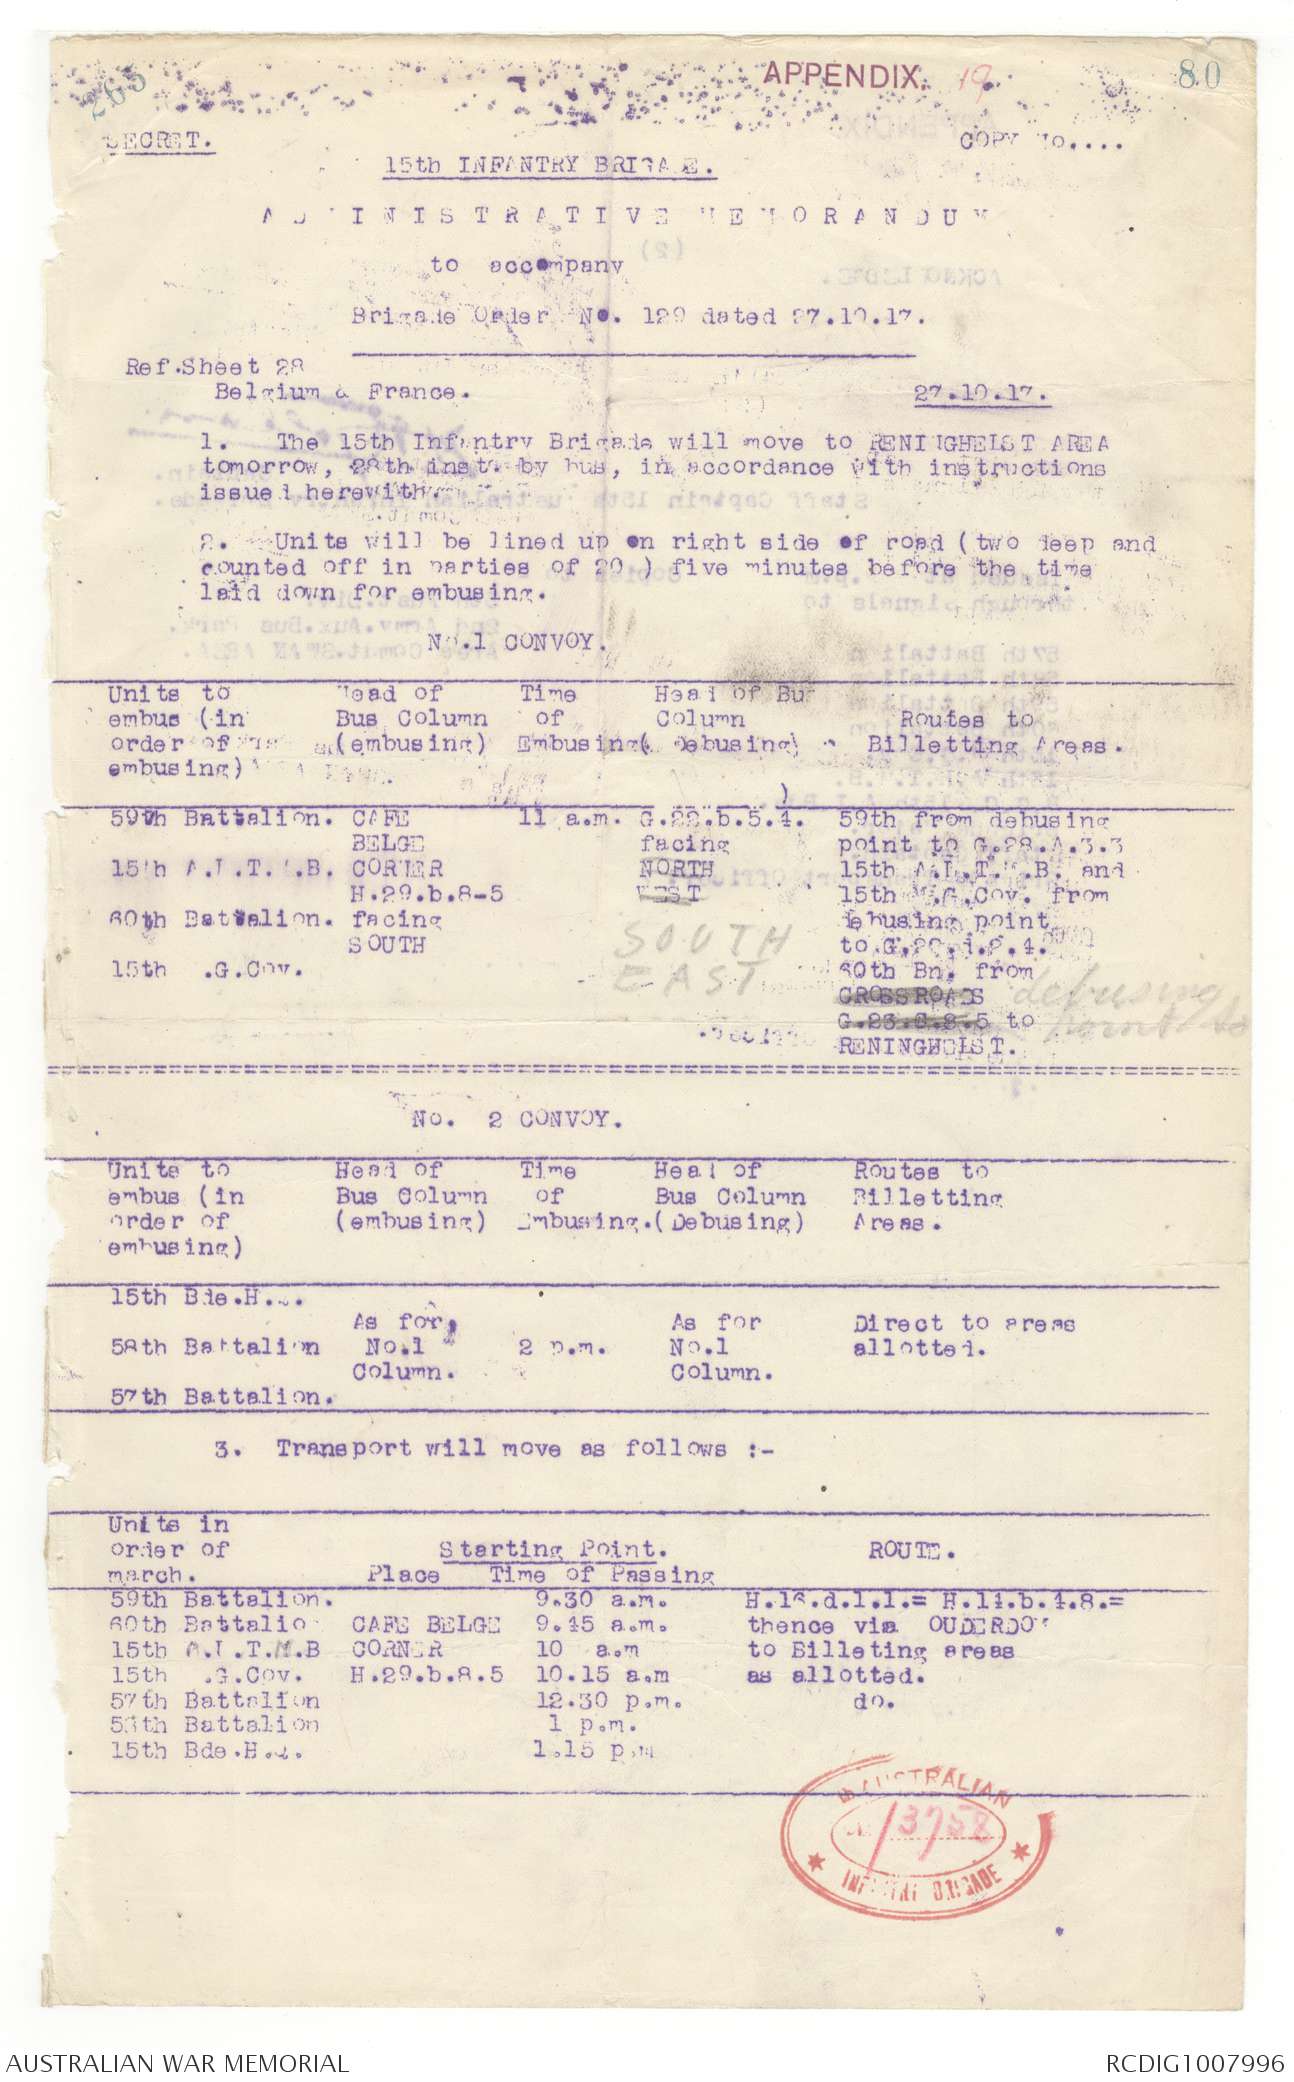 265
APPENDIX. 19
80
SECRET.
COPY No....
15th INFANTRY BRIGADE.
ADMINISTRATIVE MEMORANDUM
to accompany
Brigade Order No. 129 dated 27.10.17.
Ref.Sheet 28
Belgium & France.
27.10.17.
1. The 15th Infantry Brigade will move to RENINGHELST AREA
tomorrow, 28th inst. by bus, in accordance with instructions
issued herewith.
2. Units will be lined up on right side of road (two deep and
counted off in parties of 20 ) five minutes before the time
laid down for embusing.
No.1 CONVOY.
Units to embus (in order of embusing) Head of Bus Column (embusing) Time of Embusing Head of Bus Column (Debusing) Routes to Billetting Areas.
59th Battalion. CAFE 11 a.m. G.22.b.5.4. 59th from debusing
BELGE facing point to G.28.A.3.3
15th A.L.T.M.B. CORNER NORTH 15th A.L.T.M.B. and
H.29.b.8-5 WEST 15th M.G.Coy. from
60th Battalion. facing debusing point
SOUTH SOUTH
EAST
15th M.G.Coy. 60th Bn. from
CROSSROADS debusing
G.23.C.8.5 to point to
RENINGHELST.
No. 2 CONVOY.
Units to Head of Time Head of Routes to
embus (in Bus Column of Bus Column Billetting
order of (embusing) Embusing. (Debusing) Areas.
embusing)
15th Bde.H.Q.
As for As for Direct to areas
58th Battalion No.1 2 p.m. No.1 allotted.
Column. Column.
57th Battalion.
3. Transport will move as follows :-
Units in
order of Starting Point. ROUTE.
march. Place Time of Passing
59th Battalion. 9.30 a.m. H.16.d.1.1.= H.14.b.4.8.=
60th Battalion CAFE BELGE 9.45 a.m. thence via OUDERDOM
15th A.L.T.M.B CORNER 10 a.m to Billeting areas
15th M.G.Coy. H.29.b.8.5 10.15 a.m as allotted.
57th Battalion 12.30 p.m. do.
58th Battalion 1 p.m.
15th Bde.H.Q. 1.15 p.m
AUSTRALIAN
13758
INFANTRY BRIGADE
AUSTRALIAN WAR MEMORIAL
RCDIG1007996